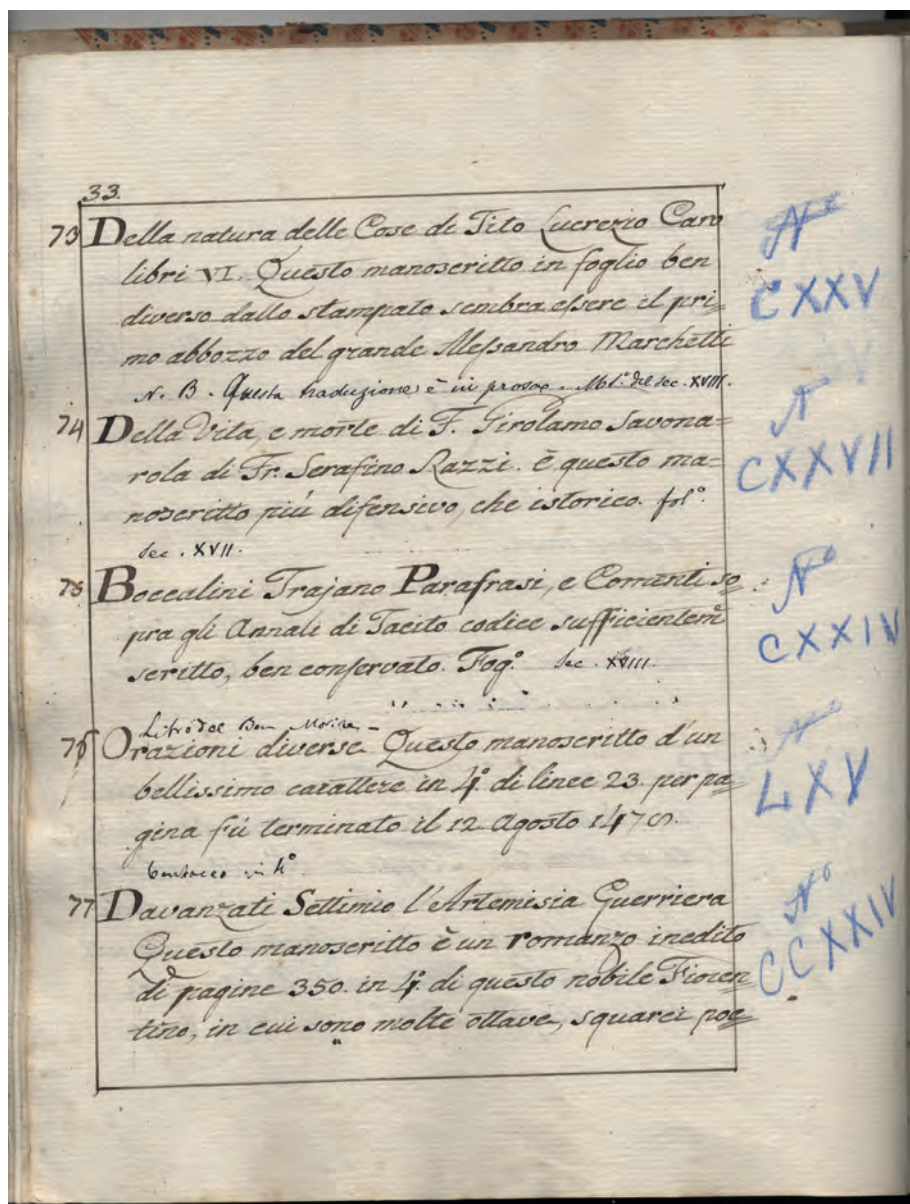 33.
73 Della natura delle Cose di Tito Lucrezio Caro
Nº CXXV
libri VI. Questo manoscritto in foglio ben
diverso dallo stampato sembra essere il pri=
mo abbozzo del grande Alessandro Marchetti
N. B. Questa traduzione è in prosa. Mst. del sec. XVIII.
74 Della Vita, e morte di F. Girolamo Savona=
Nº CXXVII
rola di Fr. Serafino Razzi. è questo ma=
noscritto più difensivo, che istorico. folº.
Sec. XVII.
75 Boccalini Trajano Parafrasi, e Comenti so=
Nº CXXIV
pra gli Annali di Tacito codice sufficientemᵉ
scritto, ben conservato. Fogº. Sec. XVIII.
Libro del Ben Morire –
76 Orazioni diverse Questo manoscritto d'un
Nº LXV
bellissimo carattere in 4º. di linee 23. per pa=
gina fú terminato il 12. Agosto
in 4º
77 Davanzati Settimio l'Artemisia Guerriera
Nº CCXXIV
Questo manoscritto è un romanzo inedito
di pagine 350. in 4º. di questo nobile Fioren=
tino, in cui sono molte ottave, squarci poe=